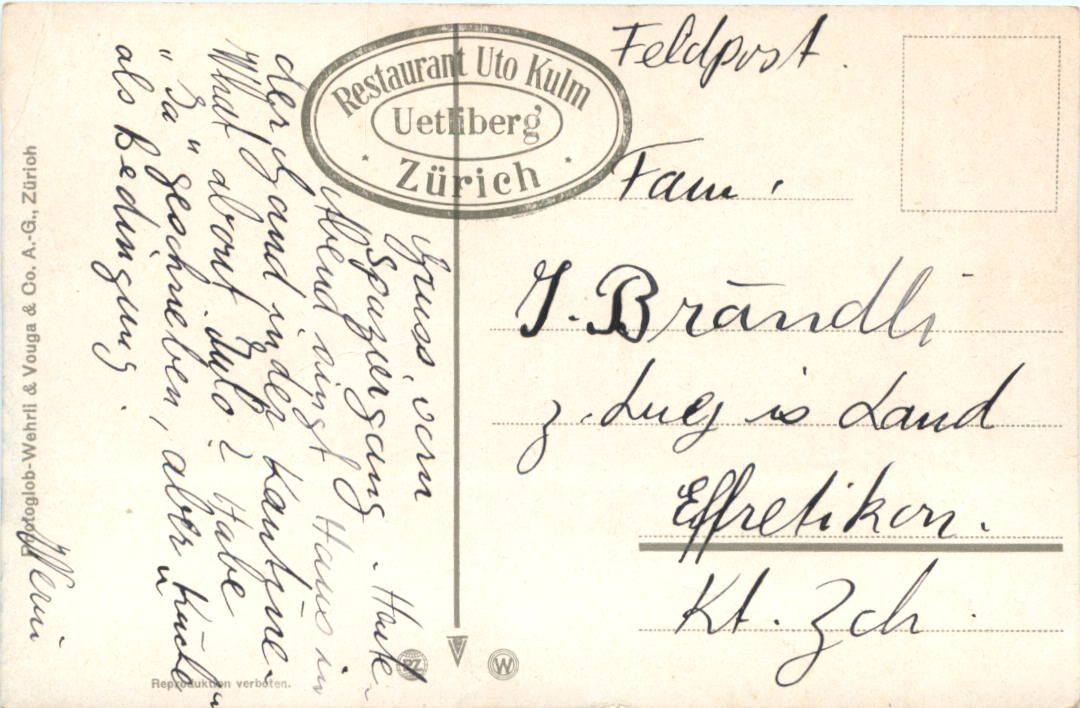 Feldpost.
Restaurant Uto Kulm
Uetliberg
Zürich
Fam.
J. Brändli
z. Lueg is Land
Effretikon.
Kt. Zch.
Gruss vom
Spaziergang. Heute
Abend singt Hans in
der Hand in der Kantine.
What about Bülo? Habe
"Ja" geschrieben, aber "Küche"
als Bedingung.
Werni
Photoglob-Wehrli & Vouga & Co. A.-G., Zürich
Reproduktion verboten.
PZ
W